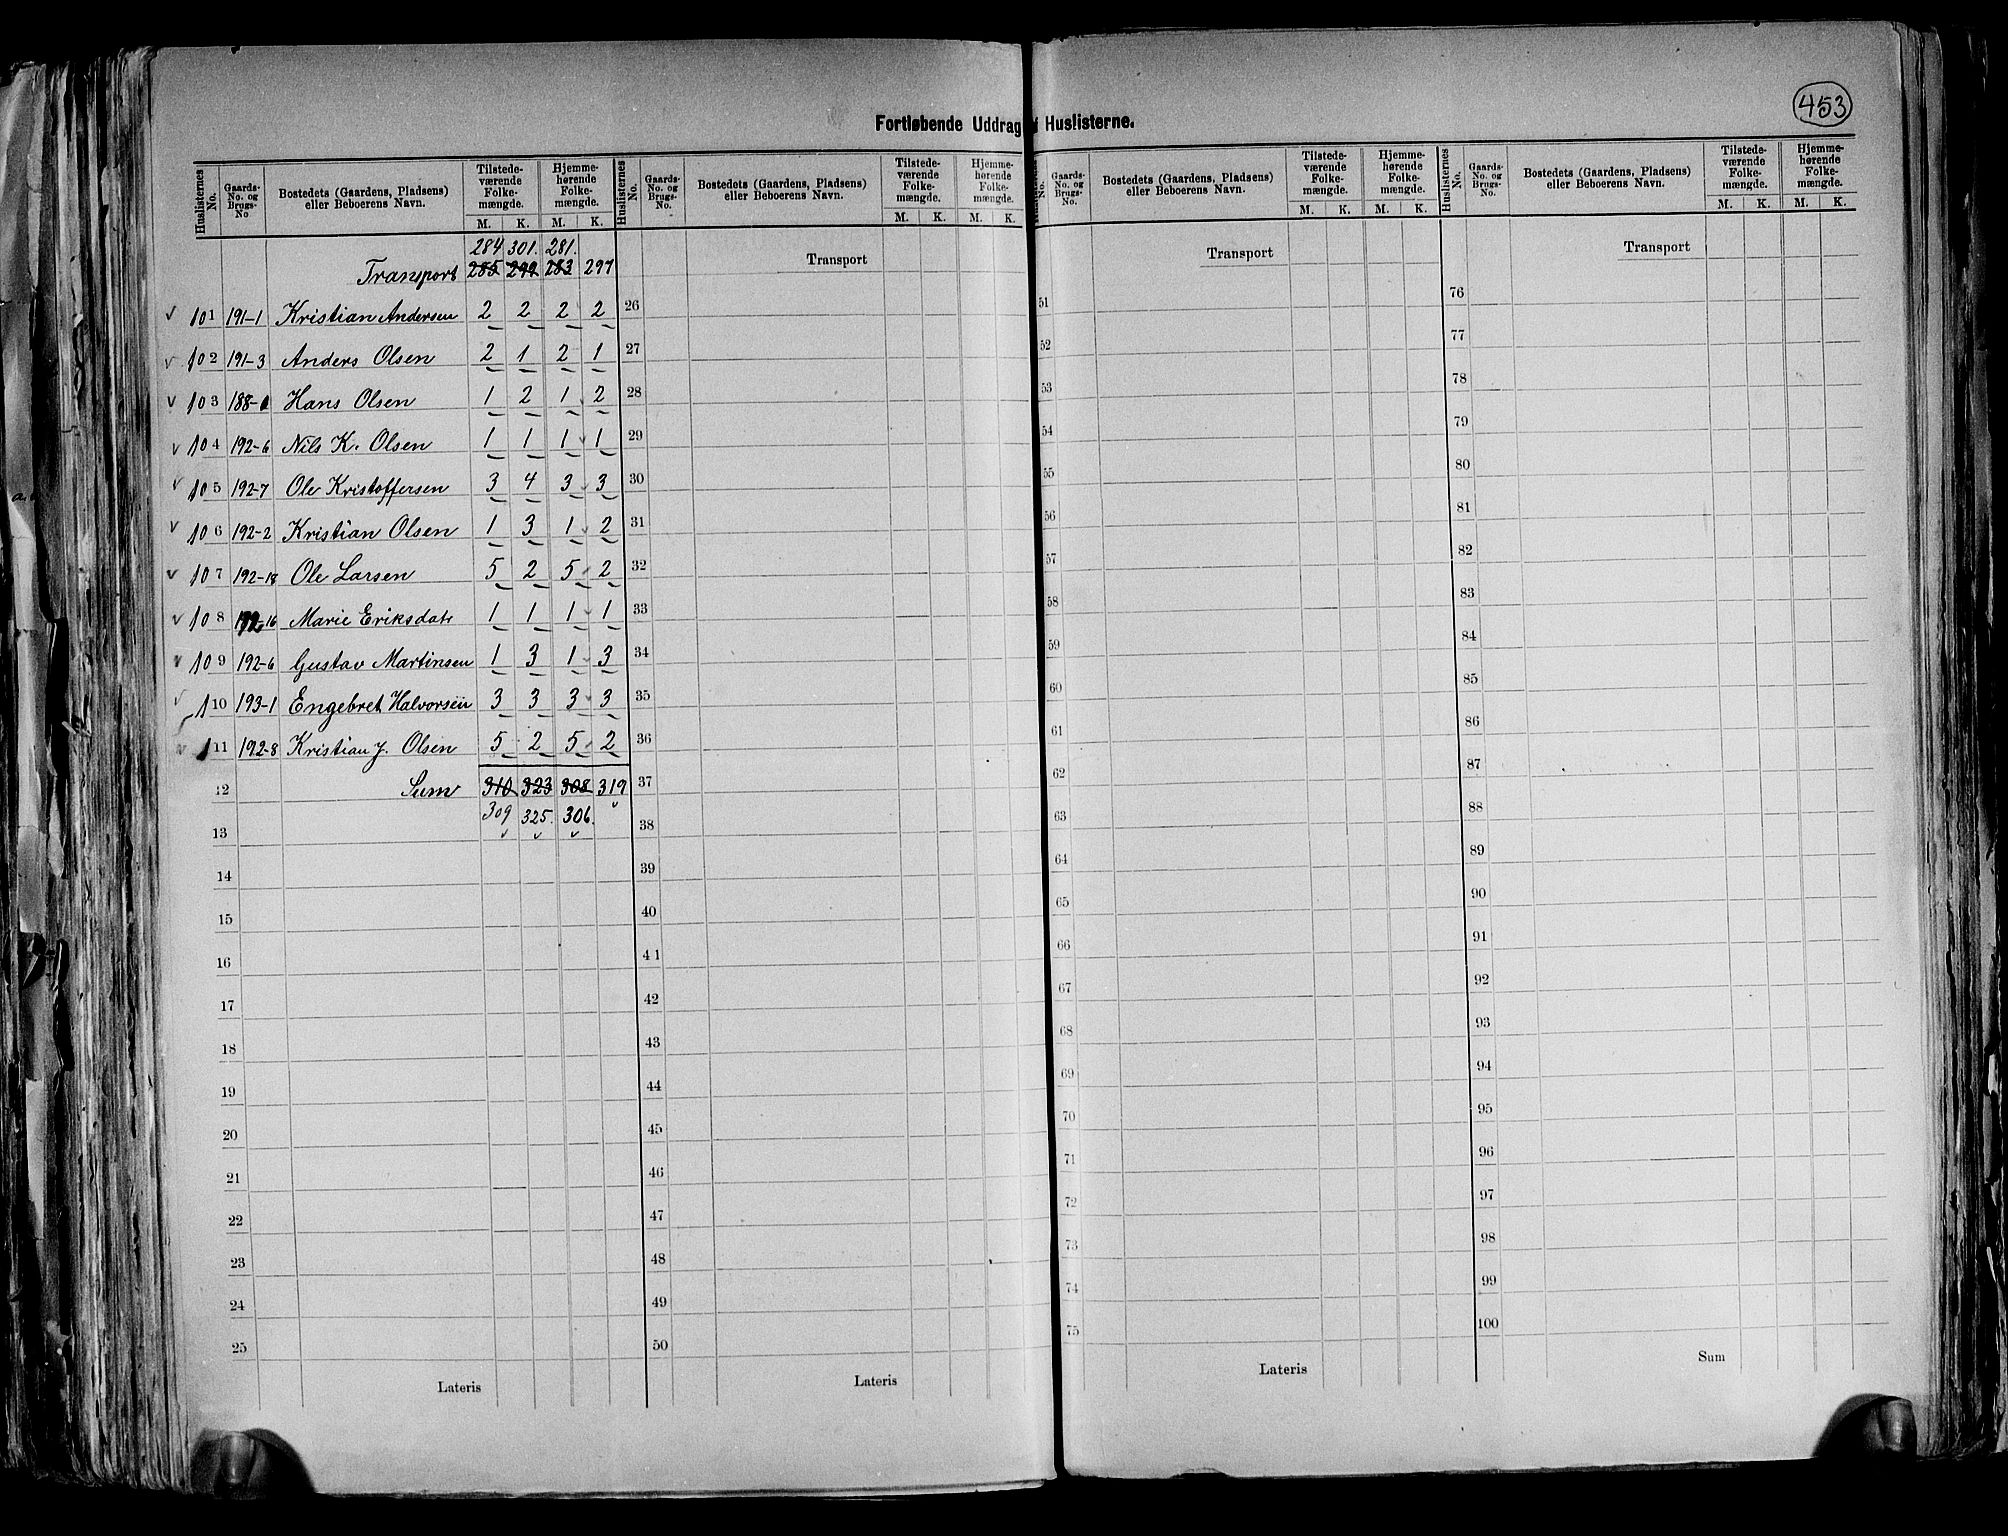 453
Fortløbende Uddrag Huslisterne.
Huslisternes No. Gaards-No. og Brugs-No Bostedets (Gaardens, Pladsens) eller Beboerens Navn. Tilstedeværende Folkemængde. M. K. Hjemmehørende Folkemængde. M. K.
Huslisternes No. Gaards-No. og Brugs-No. Bostedets (Gaardens, Pladsens) eller Beboerens Navn. Tilstedeværende Folkemængde. M. K. Hjemmehørende Folkemængde. M. K.
No. Gaards-No. og Brugs-No. Bostedets (Gaardens, Pladsens) eller Beboerens Navn. Tilstedeværende Folkemængde. M. K. Hjemmehørende Folkemængde. M. K.
Huslisternes No. Gaards-No. og Brugs-No. Bostedets (Gaardens, Pladsens) eller Beboerens Navn. Tilstedeværende Folkemængde. M. K. Hjemmehørende Folkemængde. M. K.
284 301. 281.
Transport 285 299 283 297
101 191-1 Kristian Andersen 2 2 2 2
102 191-3 Anders Olsen 2 1 2 1
103 188-1 Hans Olsen 1 2 1 2
104 192-6 Nils K. Olsen 1 1 1 1
105 192-7 Ole Kristoffersen 3 4 3 3
106 192-2 Kristian Olsen 1 3 1 2
107 192-18 Ole Larsen 5 2 5 2
108 192-16 Marie Eriksdatr 1 1 1 1
109 192-6 Gustav Martinsen 1 3 1 3
110 193-1 Engebret Halvorsen 3 3 3 3
111 192-8 Kristian J. Olsen 5 2 5 2
12 Sum 310 323 308 319
13 309 325. 306.
14
15
16
17
18
19
20
21
22
23
24
25
Lateris
Transport
26
27
28
29
30
31
32
33
34
35
36
37
38
39
40
41
42
43
44
45
46
47
48
49
50
Lateris
Transport
51
52
53
54
55
56
57
58
59
60
61
62
63
64
65
66
67
68
69
70
71
72
73
74
75
Lateris
Transport
76
77
78
79
80
81
82
83
84
85
86
87
88
89
90
91
92
93
94
95
96
97
98
99
100
Sum